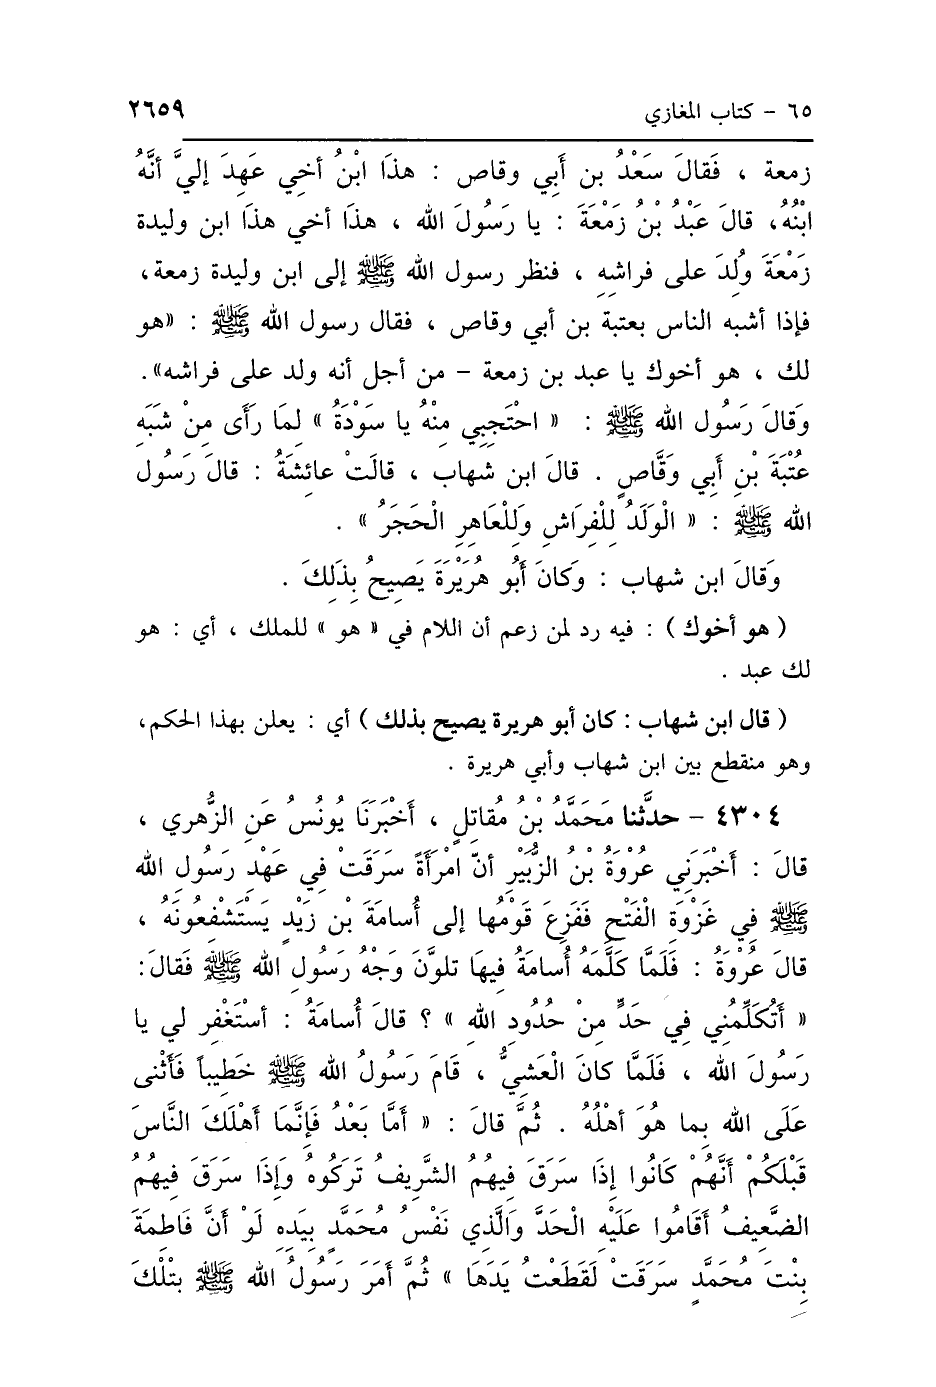 ٦٥ - كتاب المغازي ٢٦٥٩
زمعة ، فَقالَ سَعْدُ بن أَبي وقاص : هذَا ابْنُ أخِي عَهِدَ إليَّ أنَّهُ
ابْنُهُ، قالَ عَبْدُ بْنُ زَمْعَةَ : يا رَسُولَ الله ، هذَا أخي هذَا ابن وليدة
زَمْعَةَ وُلِدَ على فراشِهِ ، فنظر رسول الله ﷺ إلى ابن وليدة زمعة،
فإذا أشبه الناس بعتبة بن أبي وقاص ، فقال رسول الله ﷺ : «هو
لك ، هو أخوك يا عبد بن زمعة - من أجل أنه ولد على فراشه».
وَقالَ رَسُول الله ﷺ : « احْتَجِبِي مِنْهُ يا سَوْدَةُ » لِمَا رَأَى مِنْ شَبَهِ
عُتْبَةَ بْنِ أَبِي وَقَّاصٍ . قالَ ابن شهاب ، قالَتْ عائشَةُ : قالَ رَسُول
الله ﷺ : « الْوَلَدُ لِلْفِرَاشِ وَلِلْعَاهِرِ الْحَجَرُ » .
وَقالَ ابن شهاب : وَكانَ أَبُو هُرَيْرَةَ يَصِيحُ بِذَلِكَ .
( هو أخوك ) : فيه رد لمن زعم أن اللام في « هو » للملك ، أي : هو
لك عبد .
( قال ابن شهاب : كان أبو هريرة يصيح بذلك ) أي : يعلن بهذا الحكم،
وهو منقطع بين ابن شهاب وأبي هريرة .
٤٣٠٤ - حدثَّنا مَحَمَّدُ بْنُ مُقاتِلٍ ، أَخْبَرَنَا يُونُسُ عَنِ الزُّهري ،
قالَ : أَخْبَرَنِي عُرْوَةُ بْنُ الزُّبَيْرِ أنّ امْرَأَةً سَرَقَتْ فِي عَهْدِ رَسُولِ الله
ﷺ فِي غَزْوَةِ الْفَتْحِ فَفَزِعَ قَوْمُها إلى أُسامَةَ بْنِ زَيْدٍ يَسْتَشْفِعُونَهُ ،
قالَ عُرْوَةُ : فَلَمَّا كَلَّمَهُ أُسامَةُ فِيهَا تلوَّنَ وَجْهُ رَسُولِ الله ﷺ فَقالَ:
« أَتُكَلِّمُنِي فِي حَدٍّ مِنْ حُدُودِ الله » ؟ قالَ أُسامَةُ : أستَغْفِر لي يا
رَسُولَ الله ، فَلَمَّا كانَ الْعَشيُّ ، قَامَ رَسُولُ الله ﷺ خطِيباً فَأَثْنى
عَلَى الله بِما هُوَ أهْلُهُ . ثُمَّ قالَ : « أمَّا بَعْدُ فَإنَّمَا أهْلَكَ النَّاسَ
قَبْلَكُمْ أنَّهُمْ كَانُوا إذَا سَرَقَ فِيهُمُ الشَّرِيفُ تَرَكُوهُ وَإذَا سَرَقَ فِيهُمُ
الضَّعِيفُ أقَامُوا عَلَيْهِ الْحَدَّ وَالَّذِي نَفْسُ مُحَمَّدٍ بِيَدِهِ لَوْ أنَّ فَاطِمَةَ
بِنْتَ مُحَمَّدٍ سَرَقَتْ لَقَطَعْتُ يَدَهَا » ثُمَّ أمَرَ رَسُولُ الله ﷺ بتْلْكَ